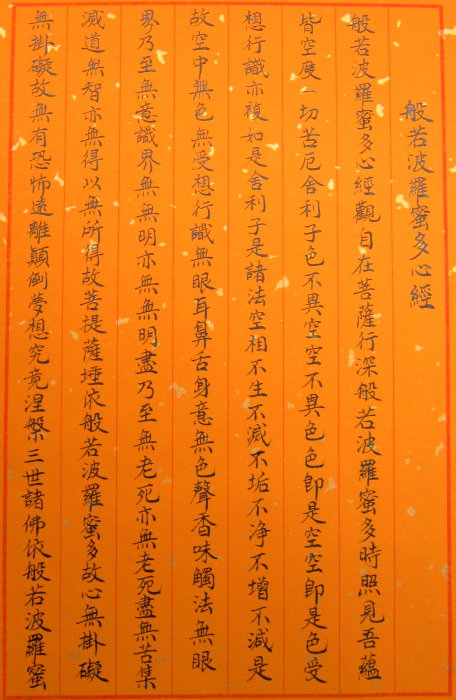 般若波羅蜜多心經
般若波羅蜜多心經觀自在菩薩行深般若波羅蜜多時照見吾蘊
皆空度一切苦厄舍利子色不異空空不異色色即是空空即是色受
想行識亦複如是舍利子是諸法空相不生不滅不垢不净不增不減是
故空中無色無受想行識無眼耳鼻舌身意無色聲香味觸法無眼
界乃至無意識界無無明亦無無明盡乃至無老死亦無老死盡無苦集
滅道無智亦無得以無所得故菩提薩埵依般若波羅蜜多故心無掛礙
無掛礙故無有恐怖遠離顛倒夢想究竟涅槃三世諸佛依般若波羅蜜